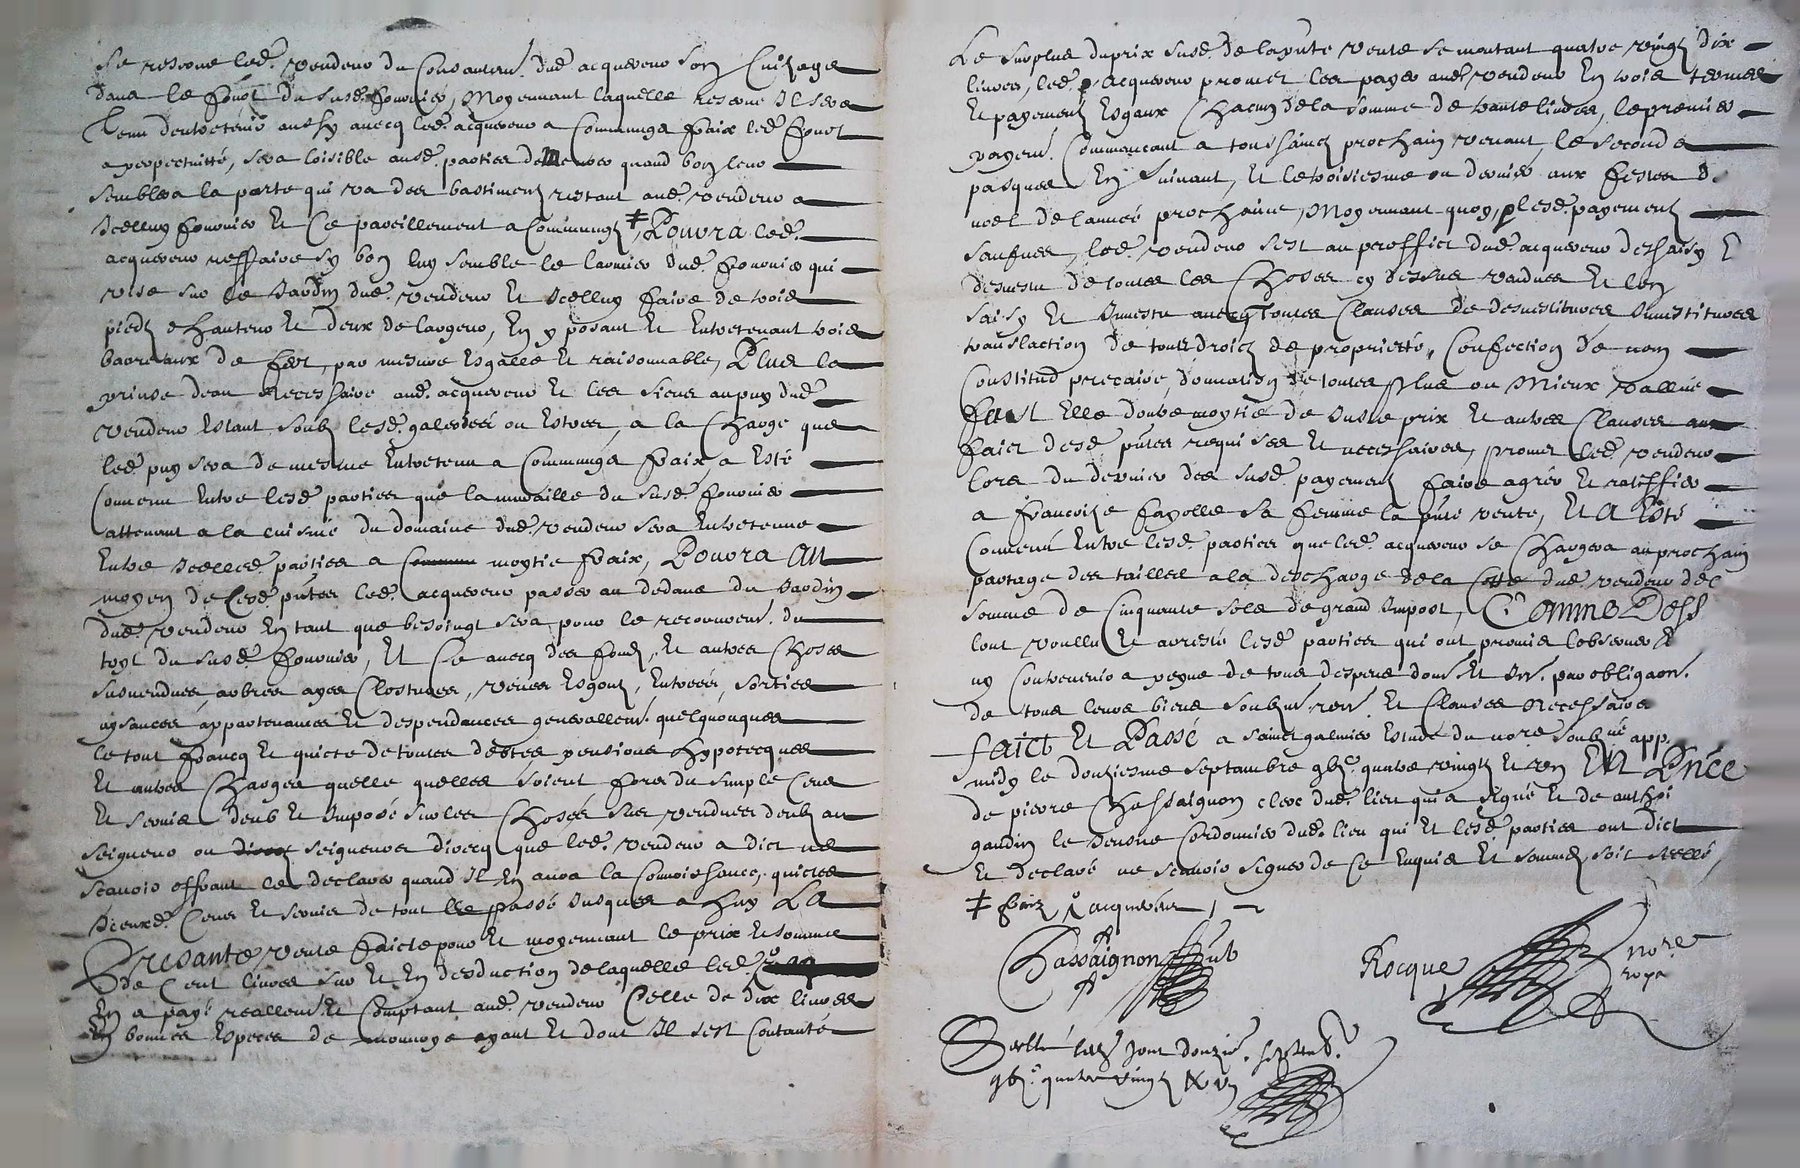 se reserve led. vendeur du consantem. dud. acquereur son cuizage
dans le fourt du susd. fournier, Moyennant laquelle reserve Il sera
tenu dentretenir aussy avecq led. acquereur a Communs fraix led. fourt
a perpectuitté, sera loisible ausd. parties de murer quand bon leur
semblera la porte qui va des bastimens restant aud. vendeur a
Icelluy fournier Et Ce pareillement a Communs ǂ, Pourra led.
acquereur reffaire sy bon luy semble le larmier dud. fournier qui
vise sur le Jardin dud. vendeur Et Icelluy faire de trois
pieds dhauteur Et deux de largeur, En y posant Et Entretenant trois
barreaux de fer, par mesure Esgalle Et raisonnable, Plus la
prinse deau Necessaire aud. acquereur Et les siens au puy dud.
vendeur Estant soubz lesd. galleries ou Estres, a la Charge que
led. puy sera de mesme Entretenu a Communs fraix a Esté
Convenu Entre lesd. parties que la muraille du susd. fournier
attenant a la cuisine du domaine dud. vendeur sera Entretenue
Entre Icelles parties a moytie fraix, Pourra au
moyen de Cesd. pntes led. acquereur passer au dedans du Jardin
dud. vendeur En tant que besoingt sera pour le recouvrem. du
toyt du susd. fournier, Et Ce avecq des fonds, Et autres Choses
susvendues arbres ayes Clostures, veues Esgouts, Entrees, sorties
aysances appartenances Et despendances generallem. quelquonques
le tout francq Et quicte de toutes debtes pensions hypotecques
Et autres Charges quelle quelles soient fors du simple Cens
Et servis deub Et Imposé sur les Choses sus vendues deub au
seigneur ou seigneurs direcq que led. vendeur a dict ne
scavoir offrant les declarer quand Il En aura la Connoissance, quictes
Diceuxd. Cens Et servis de tout le passé Jusques a huy La
Presante vente faicte pour Et moyennant le prix Et somme
de Cent livres sur Et En desduction de laquelle led.
En a payé reallem. Et Comptant aud. vendeur Celle de dix livres
En bonnes Especes de monnoye ayant Et dont Il sest Contanté
Le surplus du prix susd. de la pnte vente se montant quatre vingts dix
livres, led. acquereur promet les payer aud. vendeur En trois termes
Et payements Esgaux Chacun de la somme de trante livres, le premier
payem. Commencant a toussaincts prochain venant, le second a
pasques En suivant, Et le troisiesme ou dernier aux festes de
noel de lannée prochaine, Moyennant quoy, lesd. payements
saufves, led. vendeur sest au proffict dud. acquereur dessaisy Et
desvestu de toutes les Choses cy dessus vandues Et len
saisy Et Investu avecq toutes Clauses de desvestitures Investitures
translaction de touts droicts de proprietté, Confection de nom
Constitud precaire, donnation de toutes plus ou Mieux vallue
fust Elle doutre moytie de Juste prix Et autres Clauses au
faict desd. pntes requises Et necessaires, promet led. vendeur
lors du dernier des susd. payements faire agréer Et ratiffier
a francoize fayolle sa femme la pnte vente, Et a Esté
Convenu Entre lesd. parties que led. acquereur se Chargera au prochain
partage des tailles a la descharge de la Cotte dud. vendeur de
somme de Cinquante sols de grand Impost, Comme Dess
lont voullu Et arresté lesd. parties qui ont promis lobserver
ny Contrevenir a peyne de tous despens dom. Et Int. par obligaon.
de tous leurs biens soubzm. ren. Et Clauses Necessaires
faict Et Passé a sainct galmier Estude du nore soubzné app.
midy le douziesme septembre gbjc. quatre vingts Et un En Pnce
de pierre Chassaignon clerc dud. lieu qui a signé Et de anthoi
gaudin le Jeusne Cordonnier dud. lieu qui Et lesd. parties ont dict
Et declaré ne scavoir signer de Ce Enquis Et sommés soit seellé
ǂ fraix acquereur
Chassaignon Rocque nore
royal
Seellé led. jour douzie. septemb.
gbjc. quatre vingts Et un